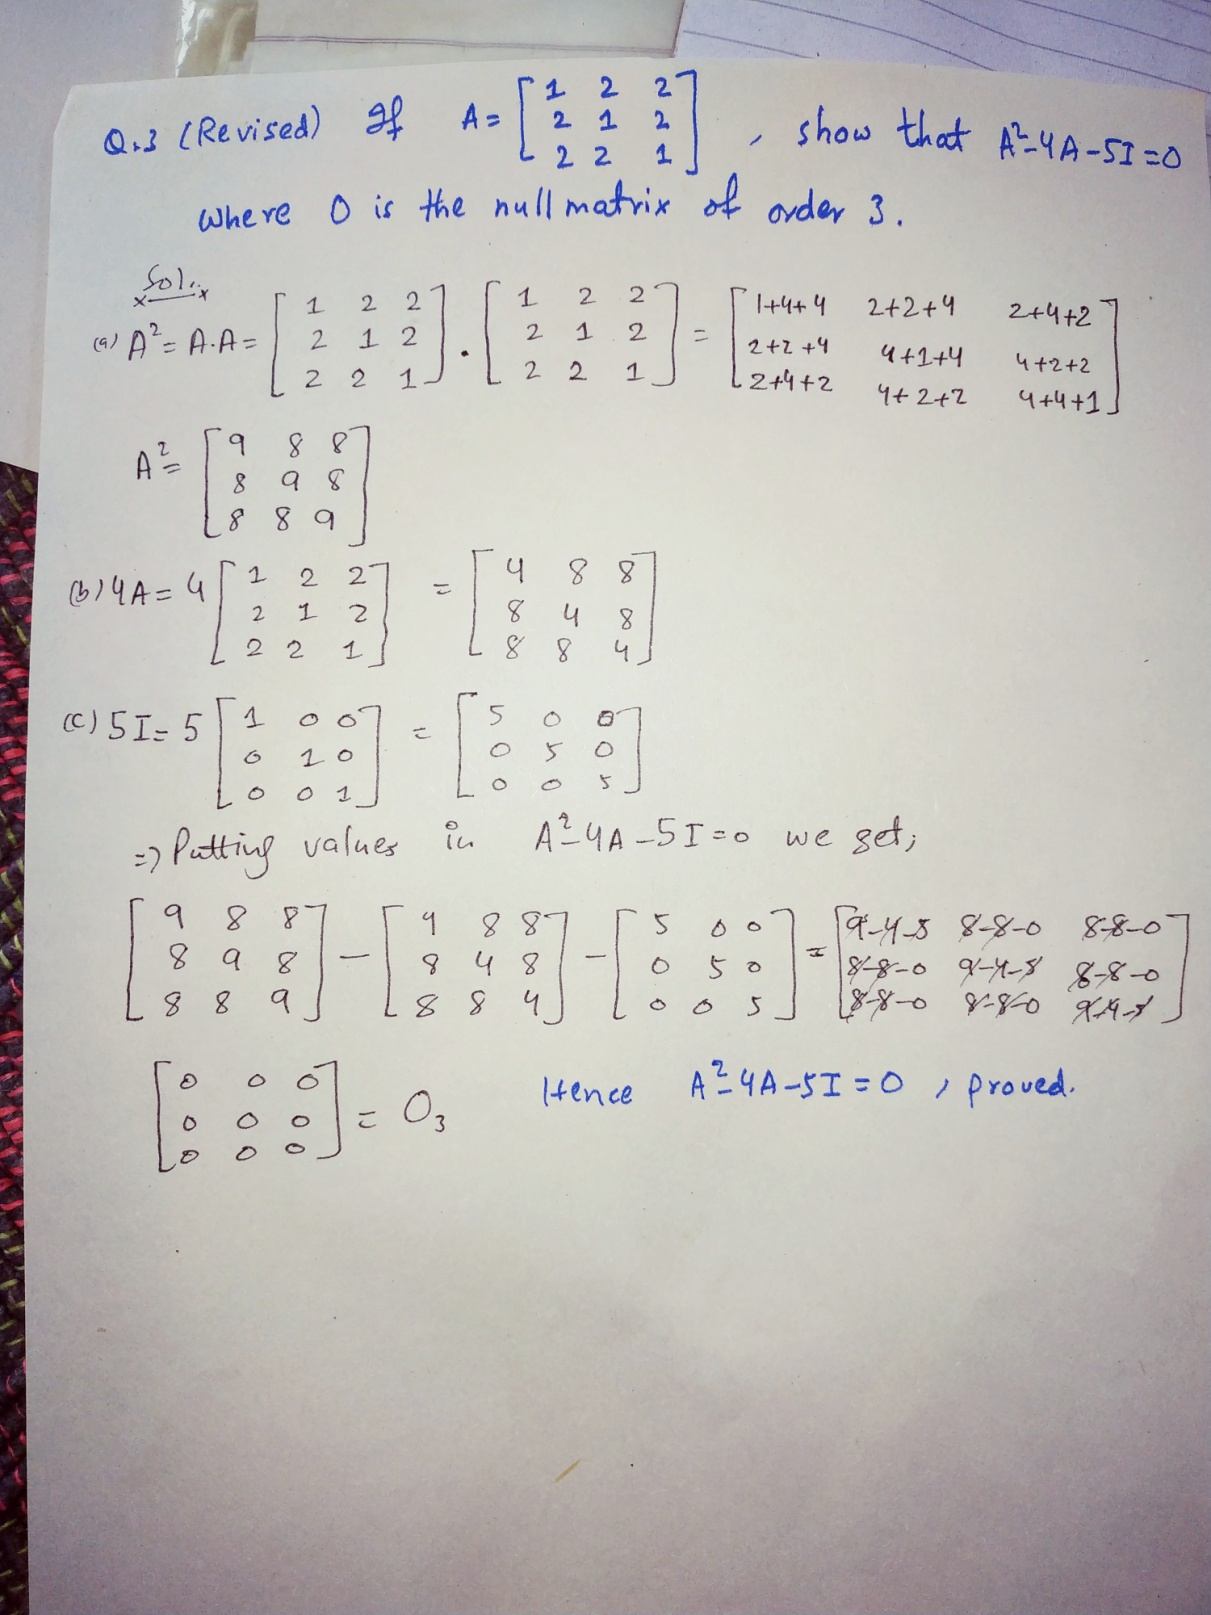 Q.3 (Revised) If A = [1 2 2
2 1 2
2 2 1] , show that A²-4A-5I=0
where O is the null matrix of order 3.
Sol.
(a) A² = A.A = [1 2 2 ] . [1 2 2 ] = [1+4+4 2+2+4 2+4+2
2 1 2 2 1 2 2+2+4 4+1+4 4+2+2
2 2 1 2 2 1 2+4+2 4+2+2 4+4+1]
A² = [9 8 8
8 9 8
8 8 9]
(b) 4A = 4 [1 2 2 = [4 8 8
2 1 2 8 4 8
2 2 1] 8 8 4]
(c) 5I = 5 [1 0 0 = [5 0 0
0 1 0 0 5 0
0 0 1] 0 0 5]
=> Putting values in A²-4A-5I=0 we get;
[9 8 8 ] - [4 8 8 ] - [5 0 0 ] = [9-4-5 8-8-0 8-8-0
8 9 8 8 4 8 0 5 0 8-8-0 9-4-5 8-8-0
8 8 9 8 8 4 0 0 5 8-8-0 8-8-0 9-4-5]
[0 0 0
0 0 0
0 0 0] = O₃ Hence A²-4A-5I=0 , proved.